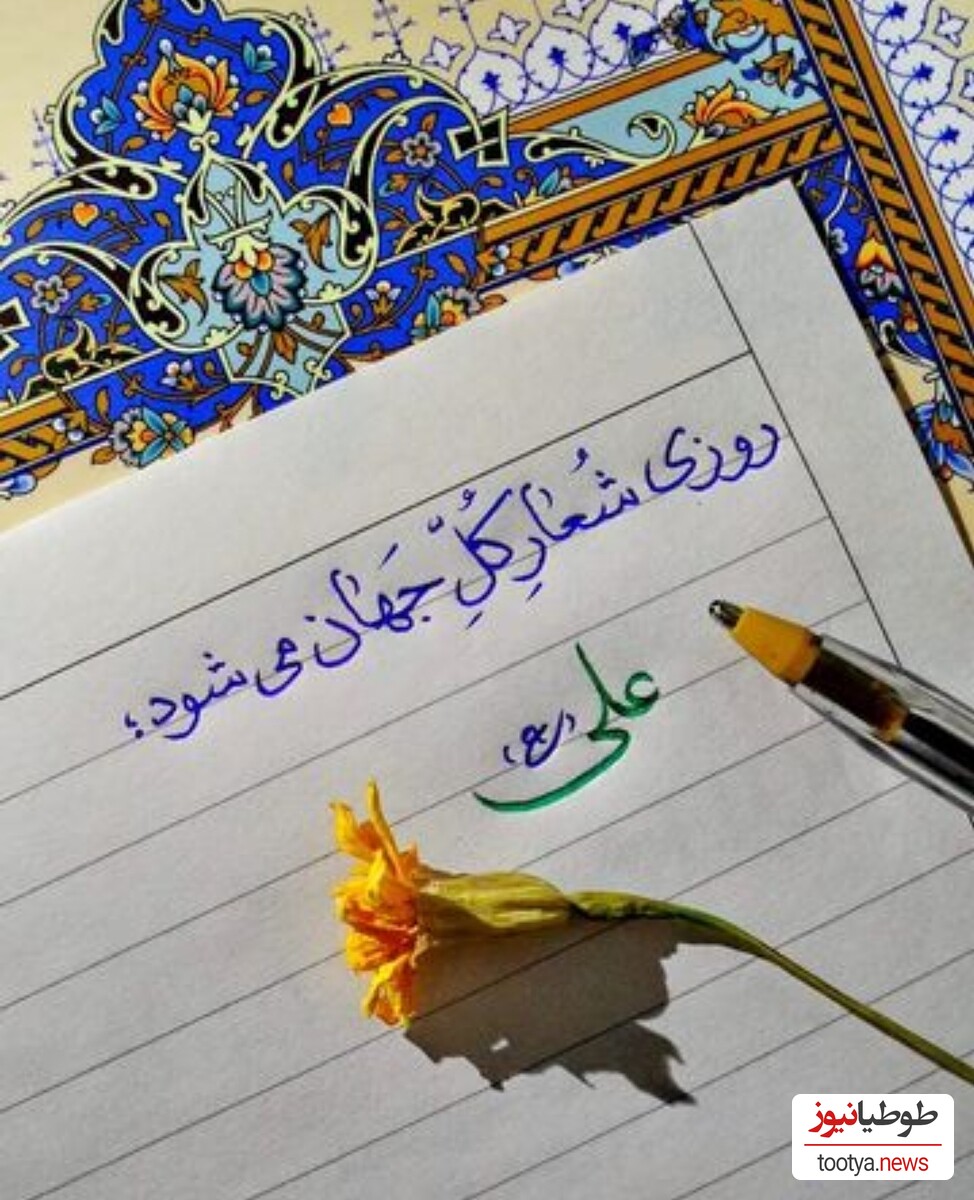 روزی شُعارِ کُلِّ جَهان می شود؛
علی (ع)
طوطیانیوز
tootya.news